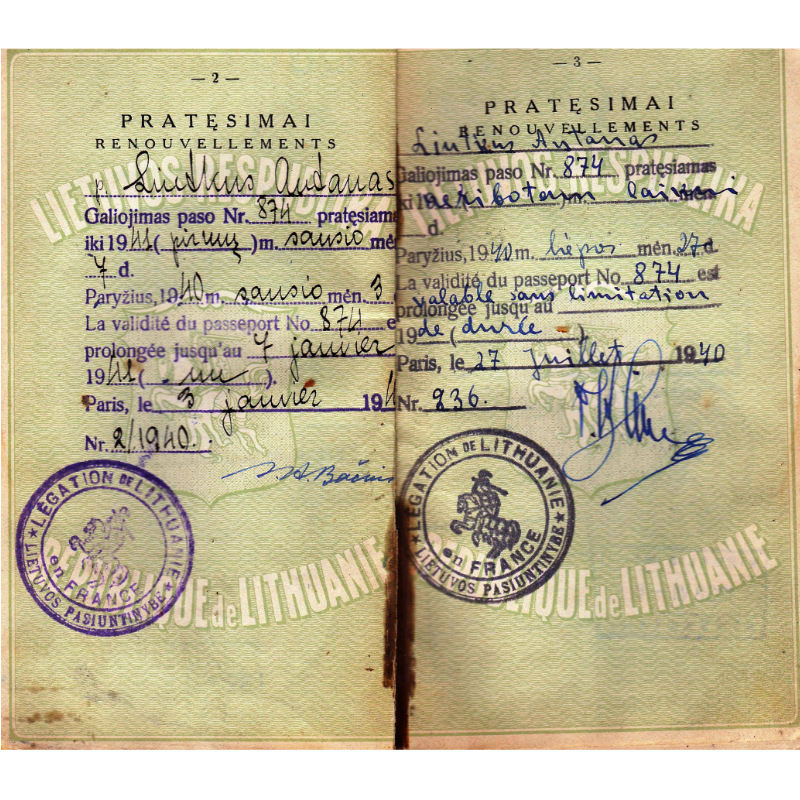 — 2 —
PRATĘSIMAI
RENOUVELLEMENTS
p. Liutkus Antanas
Galiojimas paso Nr. 874 pratęsiam
iki 1941 (pirmų) m. sausio mė
7 d.
Paryžius, 1940 m. sausio mėn. 3
La validité du passeport No. 874 e
prolongée jusqu'au 7 janvier
1941 ( un ).
Paris, le 3 janvier 194
Nr. 2/1940.
LIETUVOS RESPUBLIKA
RÉPUBLIQUE de LITHUANIE
★ LÉGATION DE LITHUANIE ★
en FRANCE
LIETUVOS PASIUNTINYBĖ
— 3 —
PRATĘSIMAI
RENOUVELLEMENTS
Liutkus Antanas
Galiojimas paso Nr. 874 pratęsiamas
iki 19 neribotam laikui mėn.
d.
Paryžius, 1940 m. liepos mėn. 27 d.
La validité du passeport No. 874 est
prolongée jusqu'au valable sans limitation
19 de (durée ).
Paris, le 27 juillet 1940
Nr. 236.
LIETUVOS RESPUBLIKA
RÉPUBLIQUE de LITHUANIE
★ LÉGATION DE LITHUANIE ★
en FRANCE
LIETUVOS PASIUNTINYBĖ